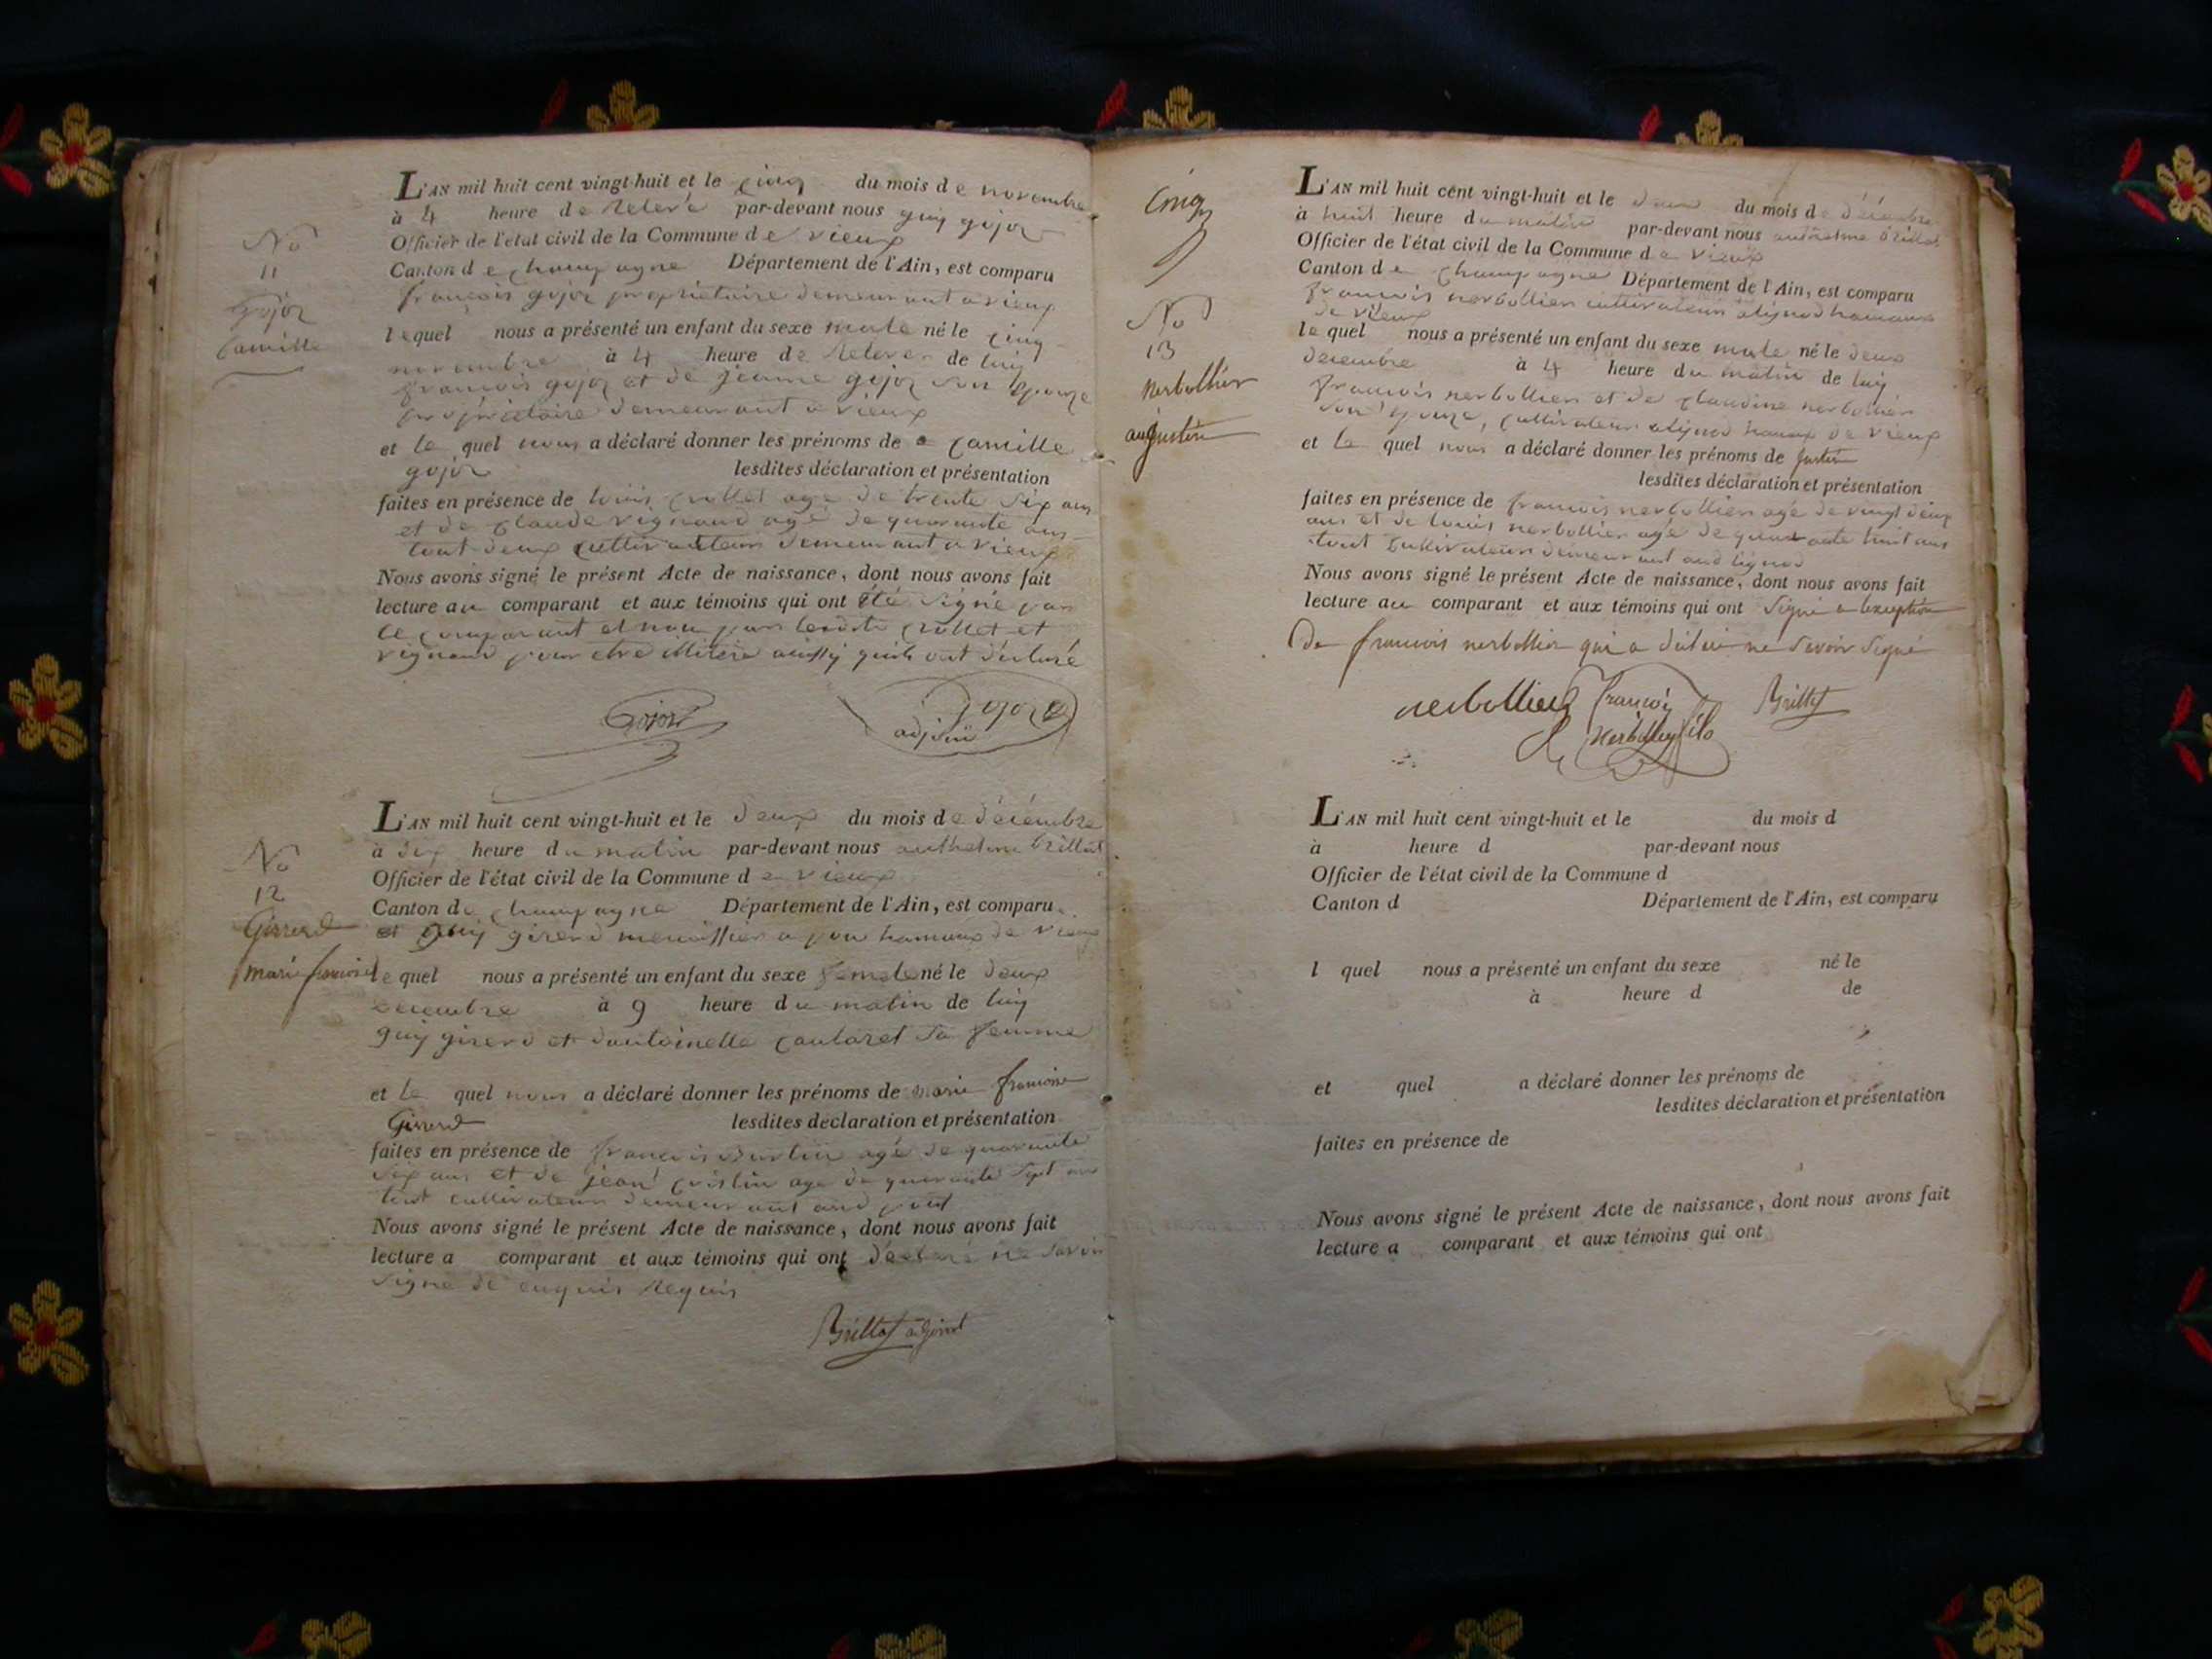 No
11
gojoz
Camille
L'AN mil huit cent vingt-huit et le cinq du mois de novembre
à 4 heure de relevé par-devant nous guy gojoz
Officier de l'état civil de la Commune de vieux
Canton de champagne Département de l'Ain, est comparu
francois gojoz proprietaire demeurant a vieux
lequel nous a présenté un enfant du sexe male né le cinq
novembre à 4 heure de relever de luy
francois gojoz et de jeanne gojoz son epouze
proprietaire demeurant a vieux
et le quel nous a déclaré donner les prénoms de camille
gojoz lesdites déclaration et présentation
faites en présence de louis crollet agé de trente six ans
et de claude vignand agé de quarante ans
tout deux cultivateur demeurant a vieux
Nous avons signé le présent Acte de naissance, dont nous avons fait
lecture au comparant et aux témoins qui ont été signé par
le comparant et non par lesdits crollet et
vignand pour etre ainssy quils ont déclaré
Gojoz
Gojoz
adjoint
No
12
Girerd
marie francoise
L'AN mil huit cent vingt-huit et le deux du mois de décembre
à dix heure du matin par-devant nous anthelme brillat
Officier de l'état civil de la Commune de vieux
Canton de champagne Département de l'Ain, est comparu
guy girerd menuissier a hameaux de vieux
le quel nous a présenté un enfant du sexe femele né le deux
decembre à 9 heure du matin de luy
guy girerd et dantoinette sa femme
et le quel nous a déclaré donner les prénoms de marie francoise
Girerd lesdites déclaration et présentation
faites en présence de francois agé de quarante
six ans et de jean agé de quarante sept ans
tout cultivateur demeurant aud
Nous avons signé le présent Acte de naissance, dont nous avons fait
lecture a comparant et aux témoins qui ont déclaré ne savoir
signé de requis
Brillat adjoint
Cinq
No
13
Nerbollier
augustin
L'AN mil huit cent vingt-huit et le deux du mois de décembre
à huit heure du matin par-devant nous anthelme brillat
Officier de l'état civil de la Commune de vieux
Canton de champagne Département de l'Ain, est comparu
francois nerbollier cultivateur a lignod hameaux
de vieux
le quel nous a présenté un enfant du sexe male né le deux
decembre à 4 heure du matin de luy
francois nerbollier et de claudine nerbollier
son epouze, cultivateur a lignod de vieux
et le quel nous a déclaré donner les prénoms de
lesdites déclaration et présentation
faites en présence de francois nerbollier agé de vingt deux
ans et de louis nerbollier agé de quarante huit ans
tout cultivateur demeurant aud lignod
Nous avons signé le présent Acte de naissance, dont nous avons fait
lecture au comparant et aux témoins qui ont signé a lexeption
de francois nerbollier qui a ne savoir signé
nerbollier francois Brillat
Nerbolley fils
L'AN mil huit cent vingt-huit et le du mois d
à heure d par-devant nous
Officier de l'état civil de la Commune d
Canton d Département de l'Ain, est comparu
l quel nous a présenté un enfant du sexe né le
à heure d de
et quel a déclaré donner les prénoms de
lesdites déclaration et présentation
faites en présence de
Nous avons signé le présent Acte de naissance, dont nous avons fait
lecture a comparant et aux témoins qui ont